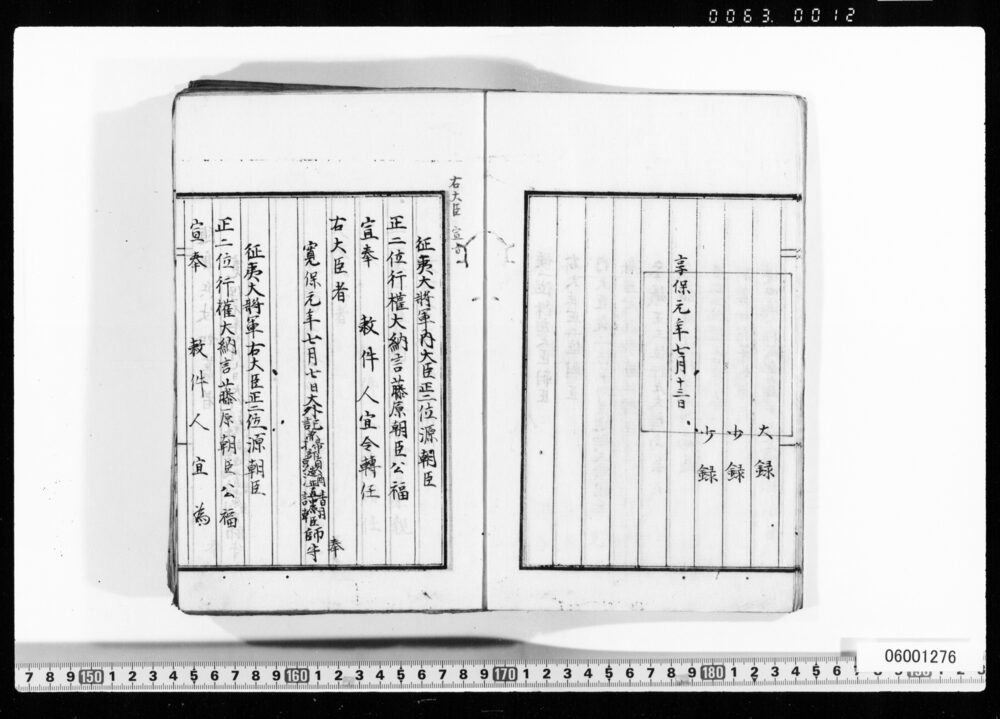 0063. 0012
大録
少録
少録
享保元年七月十三日
右大臣 宣旨
征夷大將軍内大臣正二位源朝臣
正二位行權大納言藤原朝臣公福
宣奉 敕件人宜令轉任
右大臣者
寛保元年七月七日大外記 師守 奉
征夷大將軍右大臣正二位源朝臣
正二位行權大納言藤原朝臣公福
宣奉 敕件人宜為
7 8 9 150 1 2 3 4 5 6 7 8 9 160 1 2 3 4 5 6 7 8 9 170 1 2 3 4 5 6 7 8 9 180 1 2 3 4 5 6
06001276